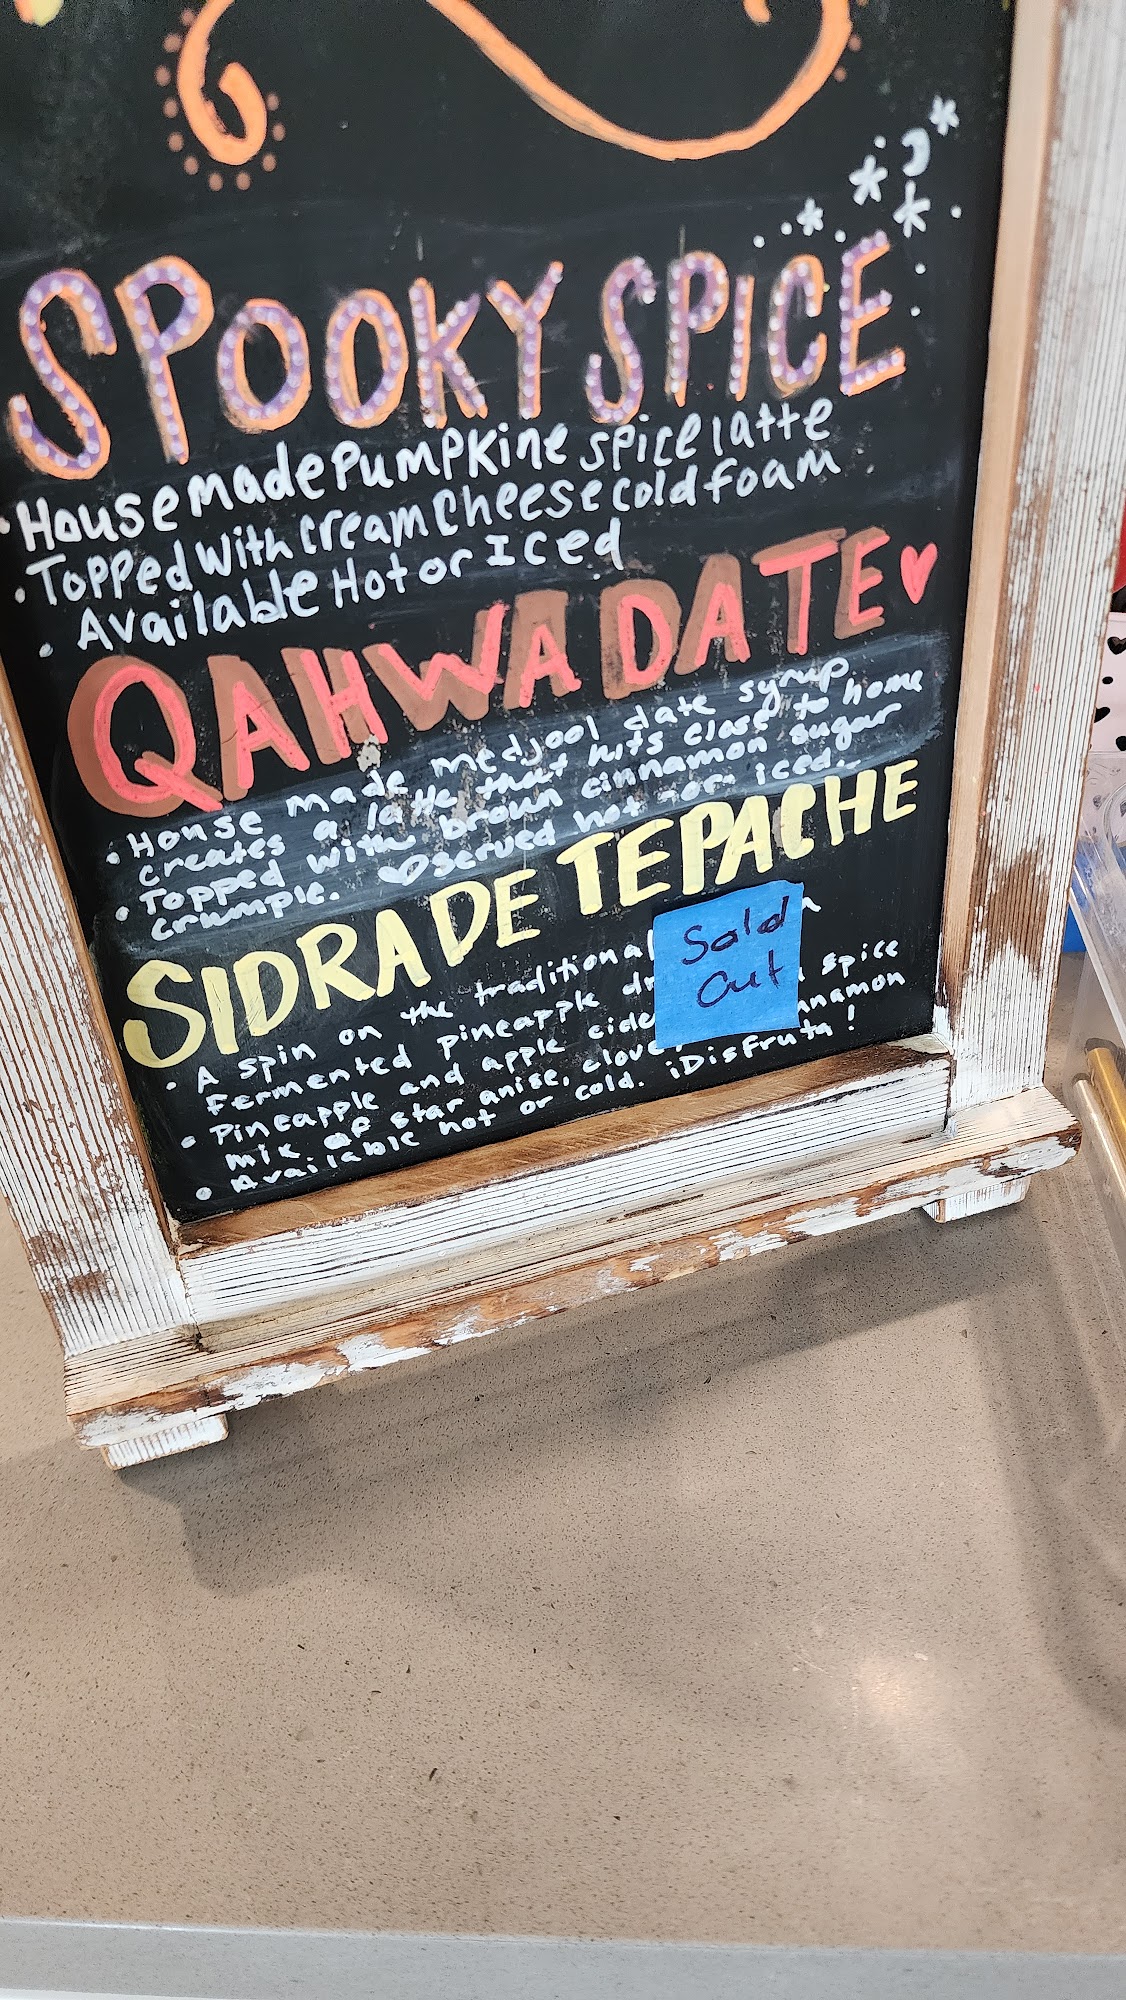 SPOOKY SPICE
• House made Pumpkine spice latte
• Topped with cream cheese cold foam
• Available Hot or Iced
QAHWA DATE
• House made medjool date syrup
creates a latte that hits close to home
• Topped with brown cinnamon sugar
crumple. served hot or iced.
SIDRA DE TEPACHE
• A spin on the traditional
Fermented pineapple
• Pineapple and apple spice
mix of star anise, clove
• Available hot or cold. ¡Disfruta!
Sold
Out